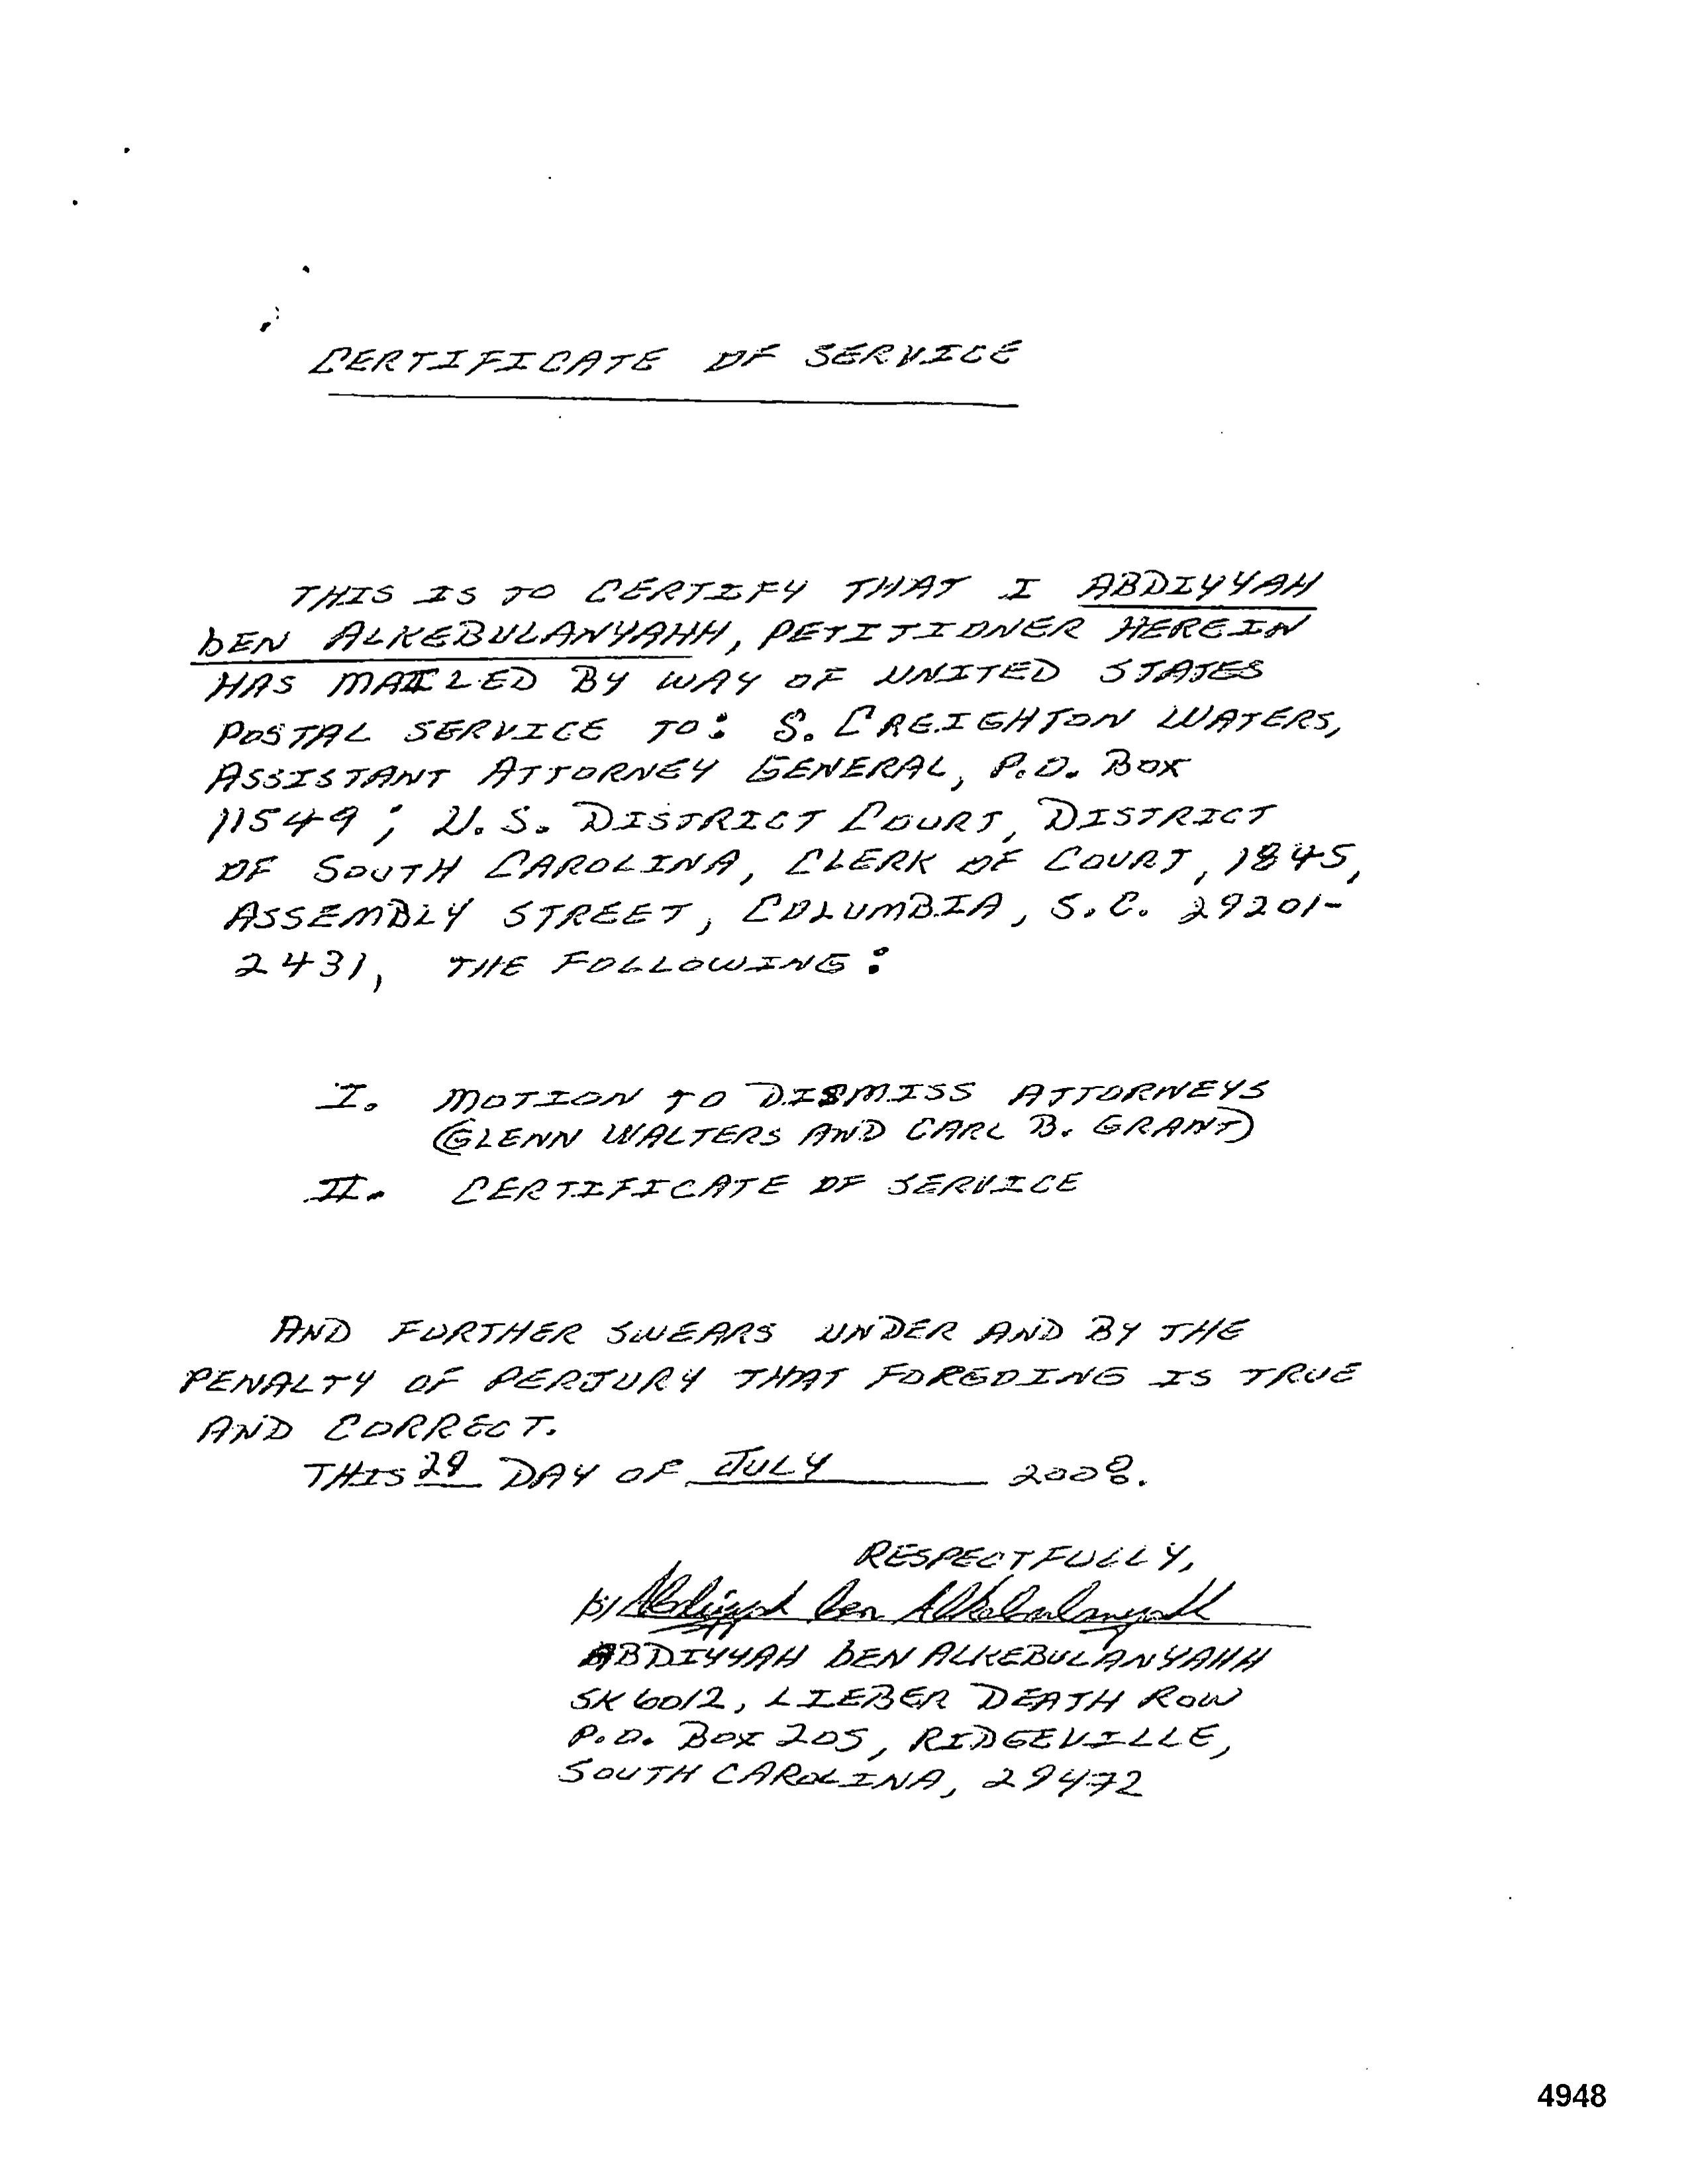 CERTIFICATE OF SERVICE
THIS IS TO CERTIFY THAT I ABDIYYAH
bEN ALKEBULANYAHH, PETITIONER HEREIN
HAS MAILED BY WAY OF UNITED STATES
POSTAL SERVICE TO: S. CREIGHTON WATERS,
ASSISTANT ATTORNEY GENERAL, P.O. BOX
11549; U.S. DISTRICT COURT, DISTRICT
OF SOUTH CAROLINA, CLERK OF COURT, 1845,
ASSEMBLY STREET, COLUMBIA, S.C. 29201-
2431, THE FOLLOWING:
I. MOTION TO DISMISS ATTORNEYS
(GLENN WALTERS AND CARL B. GRANT)
II. CERTIFICATE OF SERVICE
AND FURTHER SWEARS UNDER AND BY THE
PENALTY OF PERJURY THAT FOREGOING IS TRUE
AND CORRECT.
THIS 29 DAY OF JULY 2008.
RESPECTFULLY,
/s/ Abdiyyah ben Alkebulanyahh
ABDIYYAH bEN ALKEBULANYAHH
SK6012, LIEBER DEATH ROW
P.O. BOX 205, RIDGEVILLE,
SOUTH CAROLINA, 29472
4948